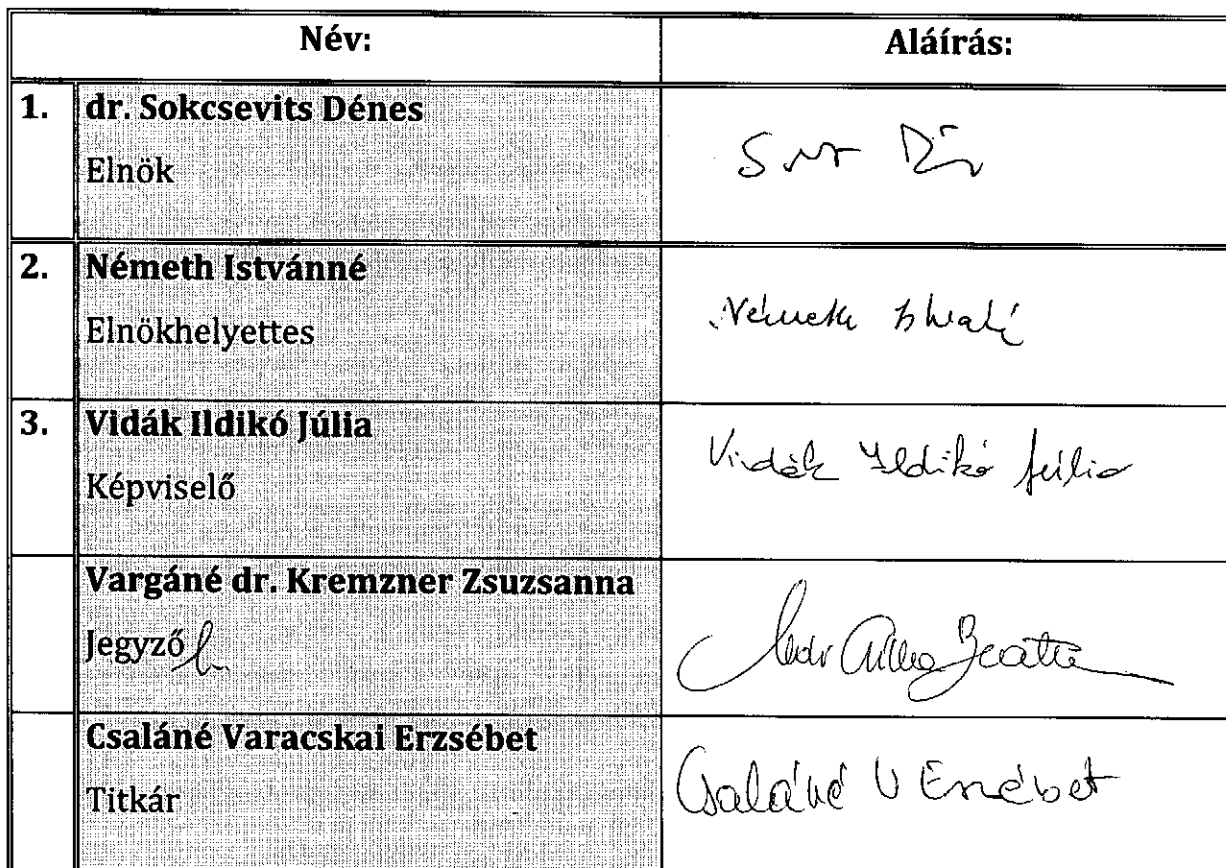 Név: Aláírás:
1. dr. Sokcsevits Dénes
Elnök
2. Németh Istvánné
Elnökhelyettes
Németh
3. Vidák Ildikó Júlia
Képviselő
Vidák Ildikó Júlia
Vargáné dr. Kremzner Zsuzsanna
Jegyző
Beatrix
Csaláné Varacskai Erzsébet
Titkár
Csaláné V Erzsébet